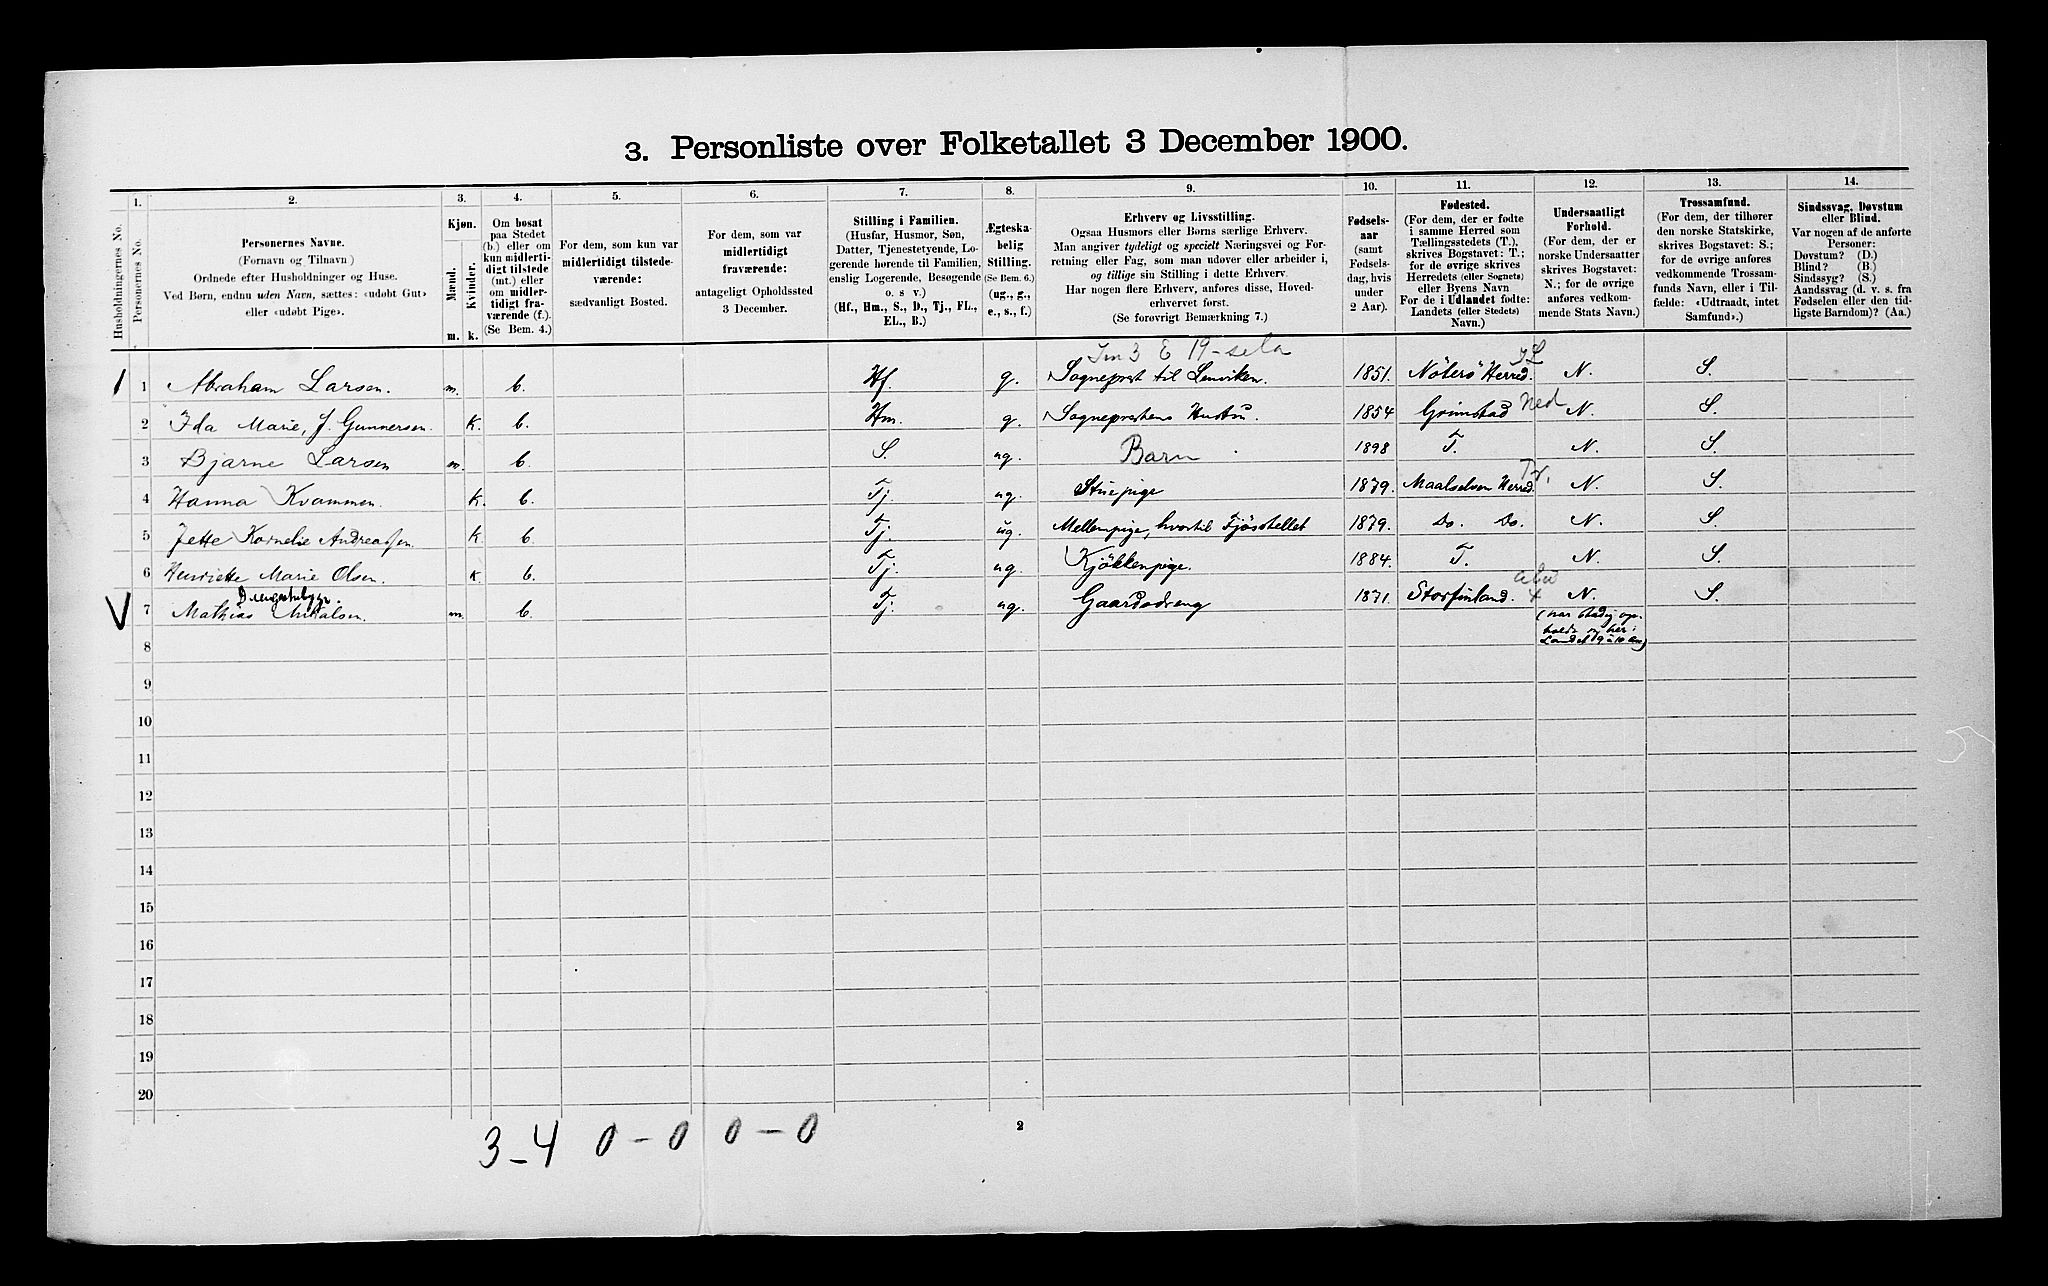 3. Personliste over Folketallet 3 December 1900.
1. 2. 3. 4. 5. 6. 7. 8. 9. 10. 11. 12. 13. 14.
Husholdningernes No.
Personernes No.
Personernes Navne.
(Fornavn og Tilnavn)
Ordnede efter Husholdninger og Huse.
Ved Børn, endnu uden Navn, sættes: «udøbt Gut»
eller «udøbt Pige».
Kjøn.
Mænd.
Kvinder.
m. k.
Om bosat
paa Stedet
(b.) eller om
kun midlerti-
digt tilstede
(mt.) eller
om midler-
tidigt fra-
værende (f.).
(Se Bem. 4.)
For dem, som kun var
midlertidigt tilstede-
værende:
sædvanligt Bosted.
For dem, som var
midlertidigt
fraværende:
antageligt Opholdssted
3 December.
Stilling i Familien.
(Husfar, Husmor, Søn,
Datter, Tjenestetyende, Lo-
gerende hørende til Familien,
enslig Logerende, Besøgende
o. s v.)
(Hf., Hm., S., D., Tj., FL.,
EL., B.)
Ægteska-
belig
Stilling.
(Se Bem. 6.)
(ug., g.,
e., s., f.)
Erhverv og Livsstilling.
Ogsaa Husmors eller Børns særlige Erhverv.
Man angiver tydeligt og specielt Næringsvei og For-
retning eller Fag, som man udøver eller arbeider i,
og tillige sin Stilling i dette Erhverv.
Har nogen flere Erhverv, anføres disse, Hoved-
erhvervet først.
(Se forøvrigt Bemærkning 7.)
Fødsels-
aar
(samt
Fødsels-
dag, hvis
under
2 Aar).
Fødested.
(For dem, der er fødte
i samme Herred som
Tællingsstedets (T.),
skrives Bogstavet: T.;
for de øvrige skrives
Herredets (eller Sognets)
eller Byens Navn
For de i Udlandet fødte:
Landets (eller Stedets)
Navn.)
Undersaatligt
Forhold.
(For dem, der er
norske Undersaatter
skrives Bogstavet:
N.; for de øvrige
anføres vedkom-
mende Stats Navn.)
Trossamfund.
(For dem, der tilhører
den norske Statskirke,
skrives Bogstavet: S.;
for de øvrige anføres
vedkommende Trossam-
funds Navn, eller i Til-
fælde: «Udtraadt, intet
Samfund».)
Sindssvag, Døvstum
eller Blind.
Var nogen af de anførte
Personer:
Døvstum? (D.)
Blind? (B.)
Sindssyg? (S.)
Aandssvag (d. v. s. fra
Fødselen eller den tid-
ligste Barndom)? (Aa.)
1 1 Abraham Larsen. m. b. Hf. g. Sogneprest til Lenviken. 1851. Nöterö Herred. N. S.
2 Ida Marie, J. Gunnersen. K. b. Hm. g. Sogneprestens Hustru. 1854 Grimstad Ned N. S.
3 Bjarne Larsen m. b. S. ug. Barn 1898 T. N. S.
4 Hanna Kvammen. K. b. Tj. ug. Stuepige 1879. Maalselven Herred. N. S.
5 Jette Kornelie Andreassen. K. b. Tj. ug. Mellempige, hvortil Fjösstellet 1879. Do. Do. N. S.
6 Henriette Marie Olsen. K. b. Tj. ug. Kjökkenpige. 1884. T. N. S.
7 Mathias Mikalsen. m. b. Tj. ug. Gaardsdreng 1871. Storfinland. N. S.
8
9
10
11
12
13
14
15
16
17
18
19
20
3-4 0-0 0-0
2